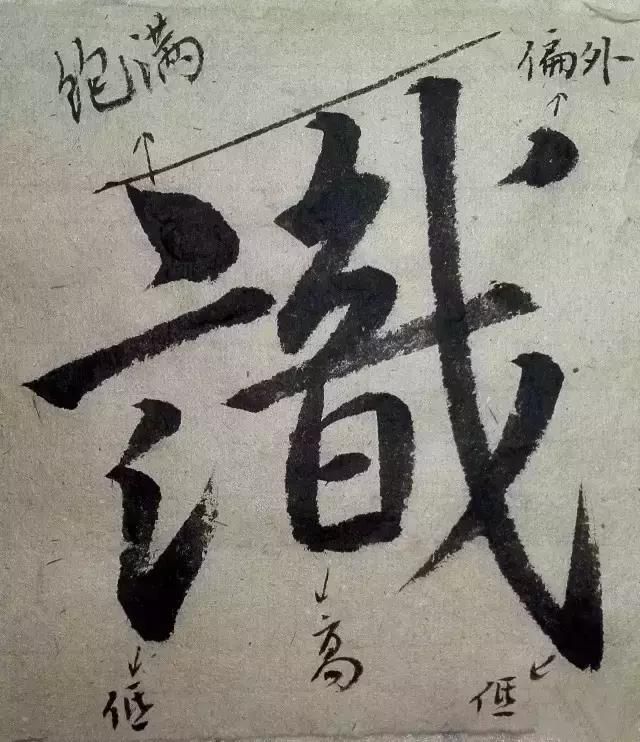 饱满
偏外
識
低
高
低